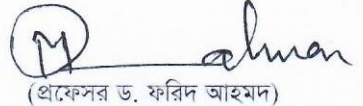 (প্রফেসর ড. ফরিদ আহমদ)